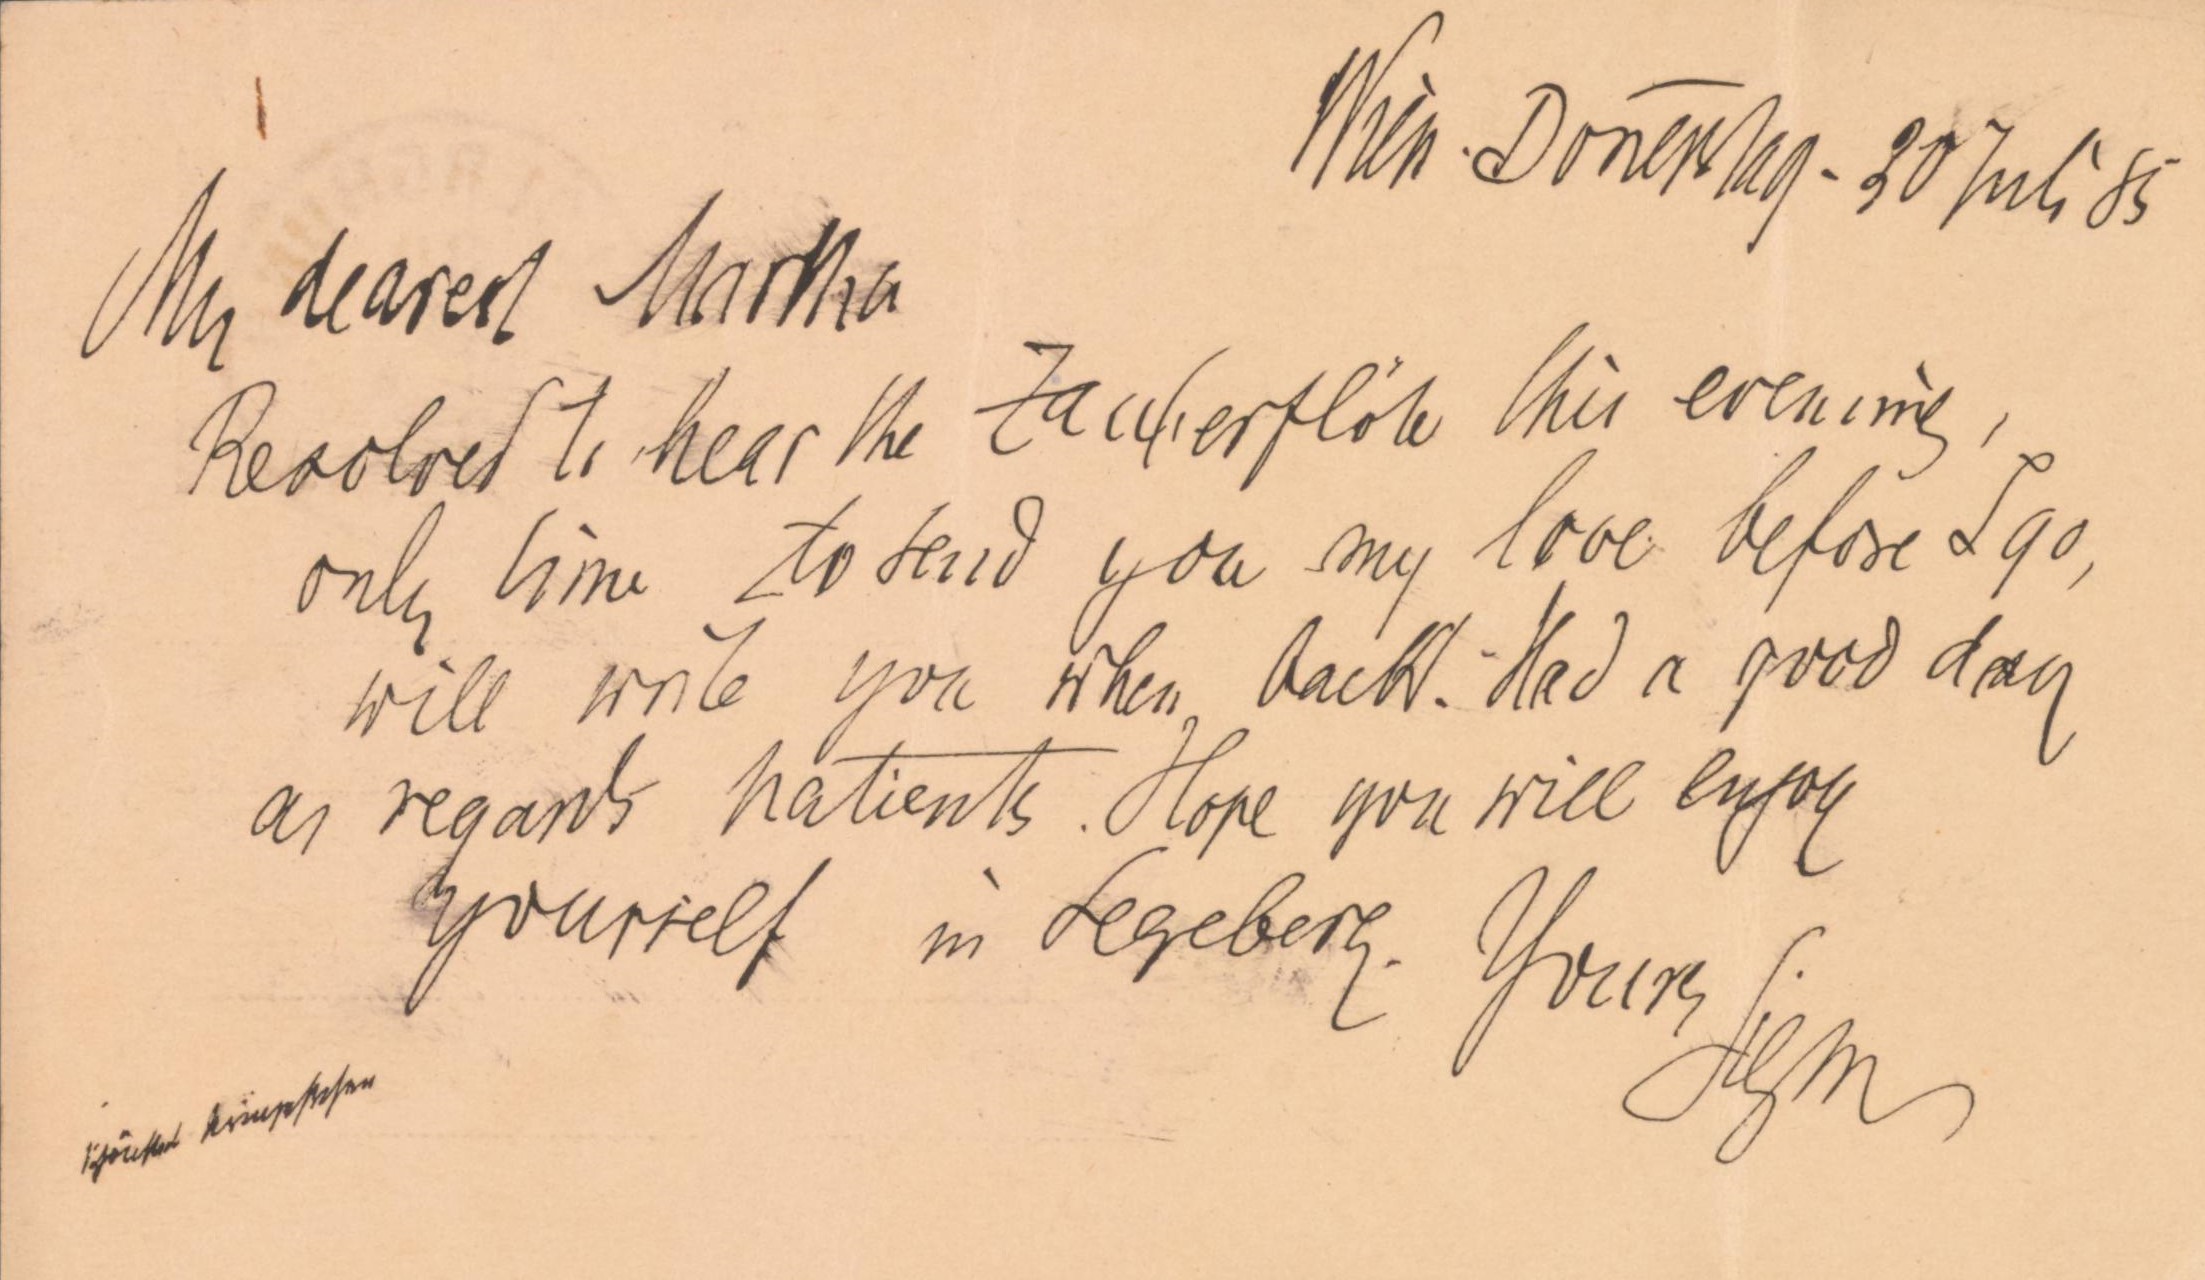 Wien. Donerstag - 30 Juli 85
My dearest Martha
Resolved to hear the Zauberflöte this evening,
only time to send you my love before I go,
will write you when back. - Had a good day
as regards patients. Hope you will enjoy
yourself in Segeberg. Yours
Sigm